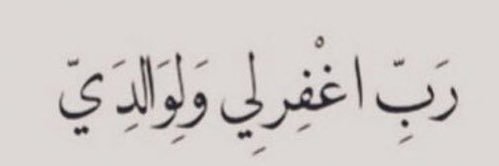 رَبِّ اغْفِرلِي وَلِوَالِدَيّ